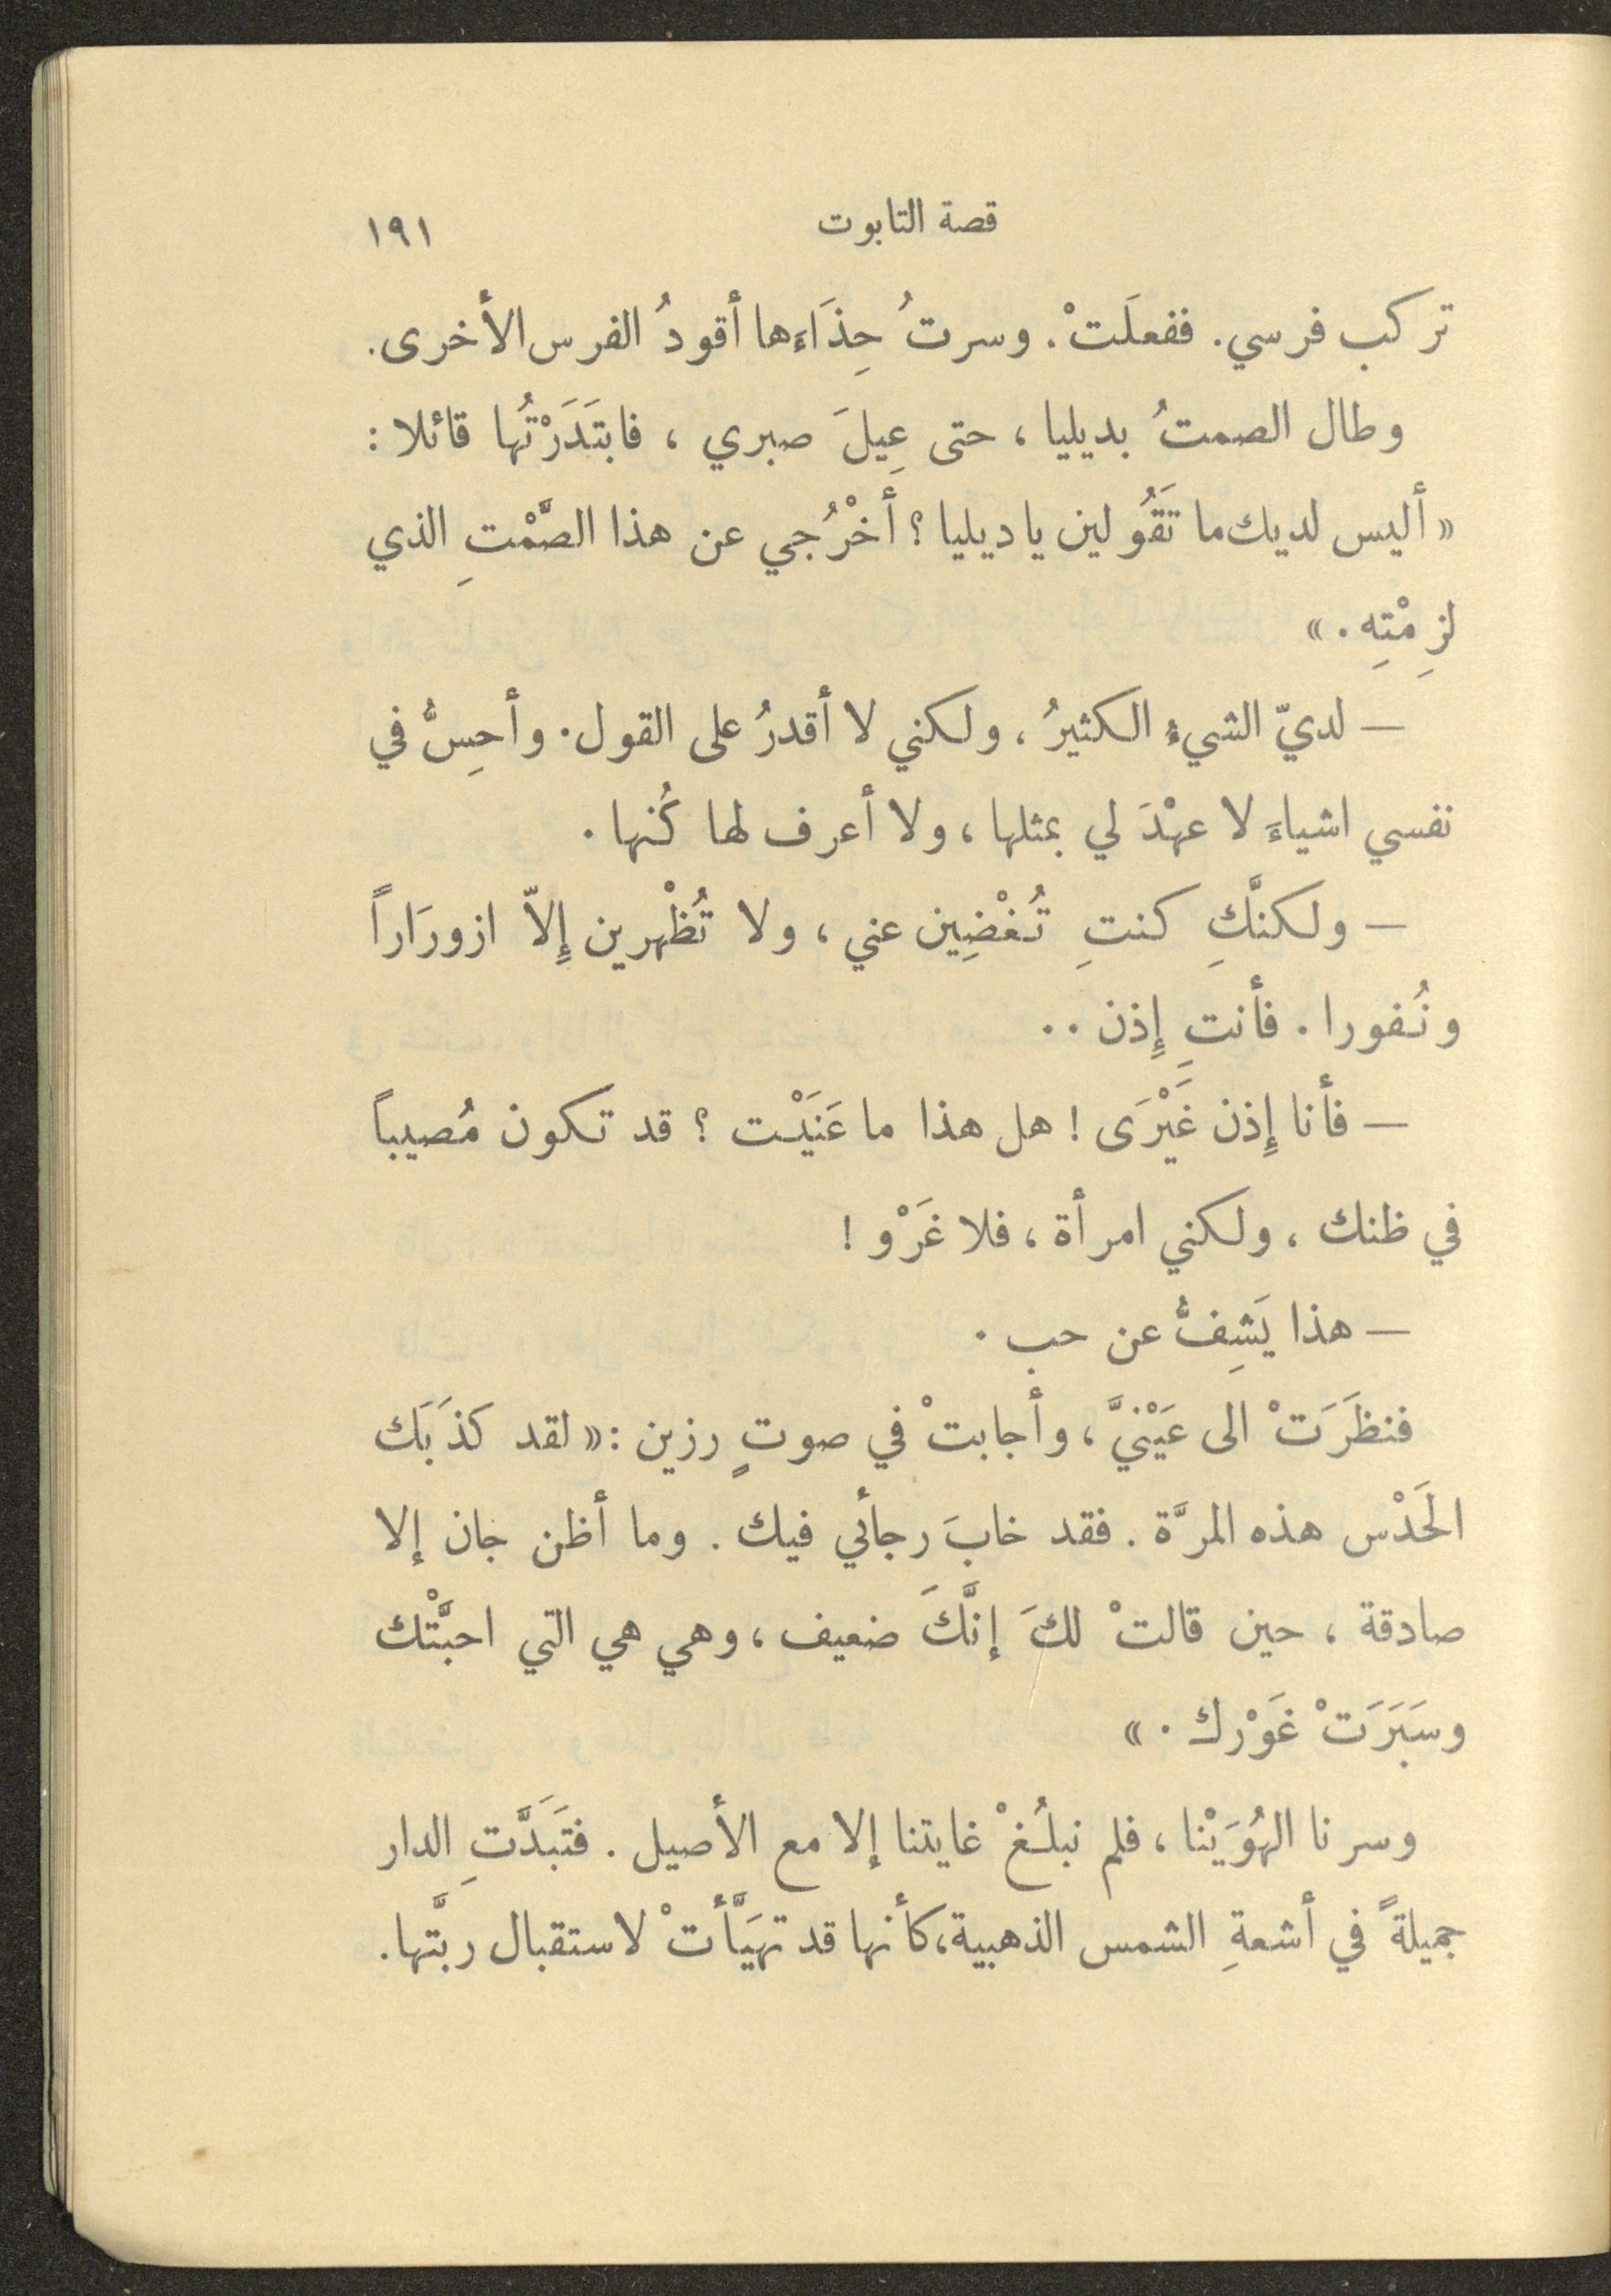 قصة التابوت ١٩١
تركب فرسي. ففعلَتْ. وسرتُ حِذَاءَها أقودُ الفرس الأخرى.
وطال الصمتُ بديليا، حتى عِيلَ صبري، فابتَدَرْتُها قائلا:
« أليس لديك ما تَقُولين يا ديليا؟ أخْرُجي عن هذا الصَّمْتِ الذي
لزِمْتِهِ. »
— لديّ الشيءُ الكثيرُ، ولكني لا أقدرُ على القول. وأحِسُّ في
نفسي اشياءَ لا عهْدَ لي بمثلها، ولا أعرف لها كُنها.
— ولكنَّكِ كنتِ تُغْضِين عني، ولا تُظْهرين إِلاّ ازورَاراً
ونُفورا. فأنتِ إِذن ..
— فأنا إِذن غَيْرَى! هل هذا ما عَنَيْت؟ قد تكون مُصيباً
في ظنك، ولكني امرأة، فلا غَرْو!
— هذا يَشِفُّ عن حب.
فنظَرَتْ الى عَيْنيَّ، وأجابتْ في صوتٍ رزين: « لقد كذَبَك
الحَدْس هذه المرَّة. فقد خابَ رجأئي فيك. وما أظن جان إلا
صادقة، حين قالتْ لكَ إنَّكَ ضعيف، وهي هي التي احبَّتْك
وسَبَرَتْ غَوْرك. »
وسرنا الهُوَيْنا، فلم نبلُغْ غايتنا إلا مع الأصيل. فتَبَدَّتِ الدار
جميلةً في أشعةِ الشمس الذهبية، كأنها قد تهيَّأتْ لاستقبال ربَّتها.